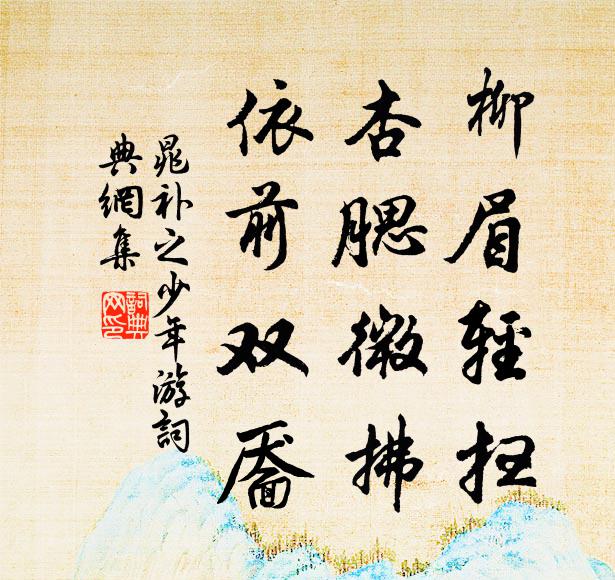 柳眉輕扫
杏腮微拂
依前双靥
晁补之少年游詞
典網集
詞典网印